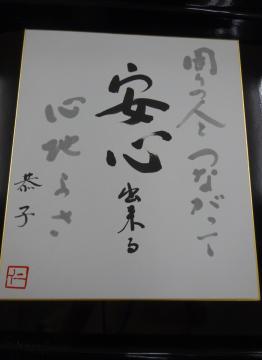 周りの人と
つながって
安心出来る
心地よさ
恭子
仁